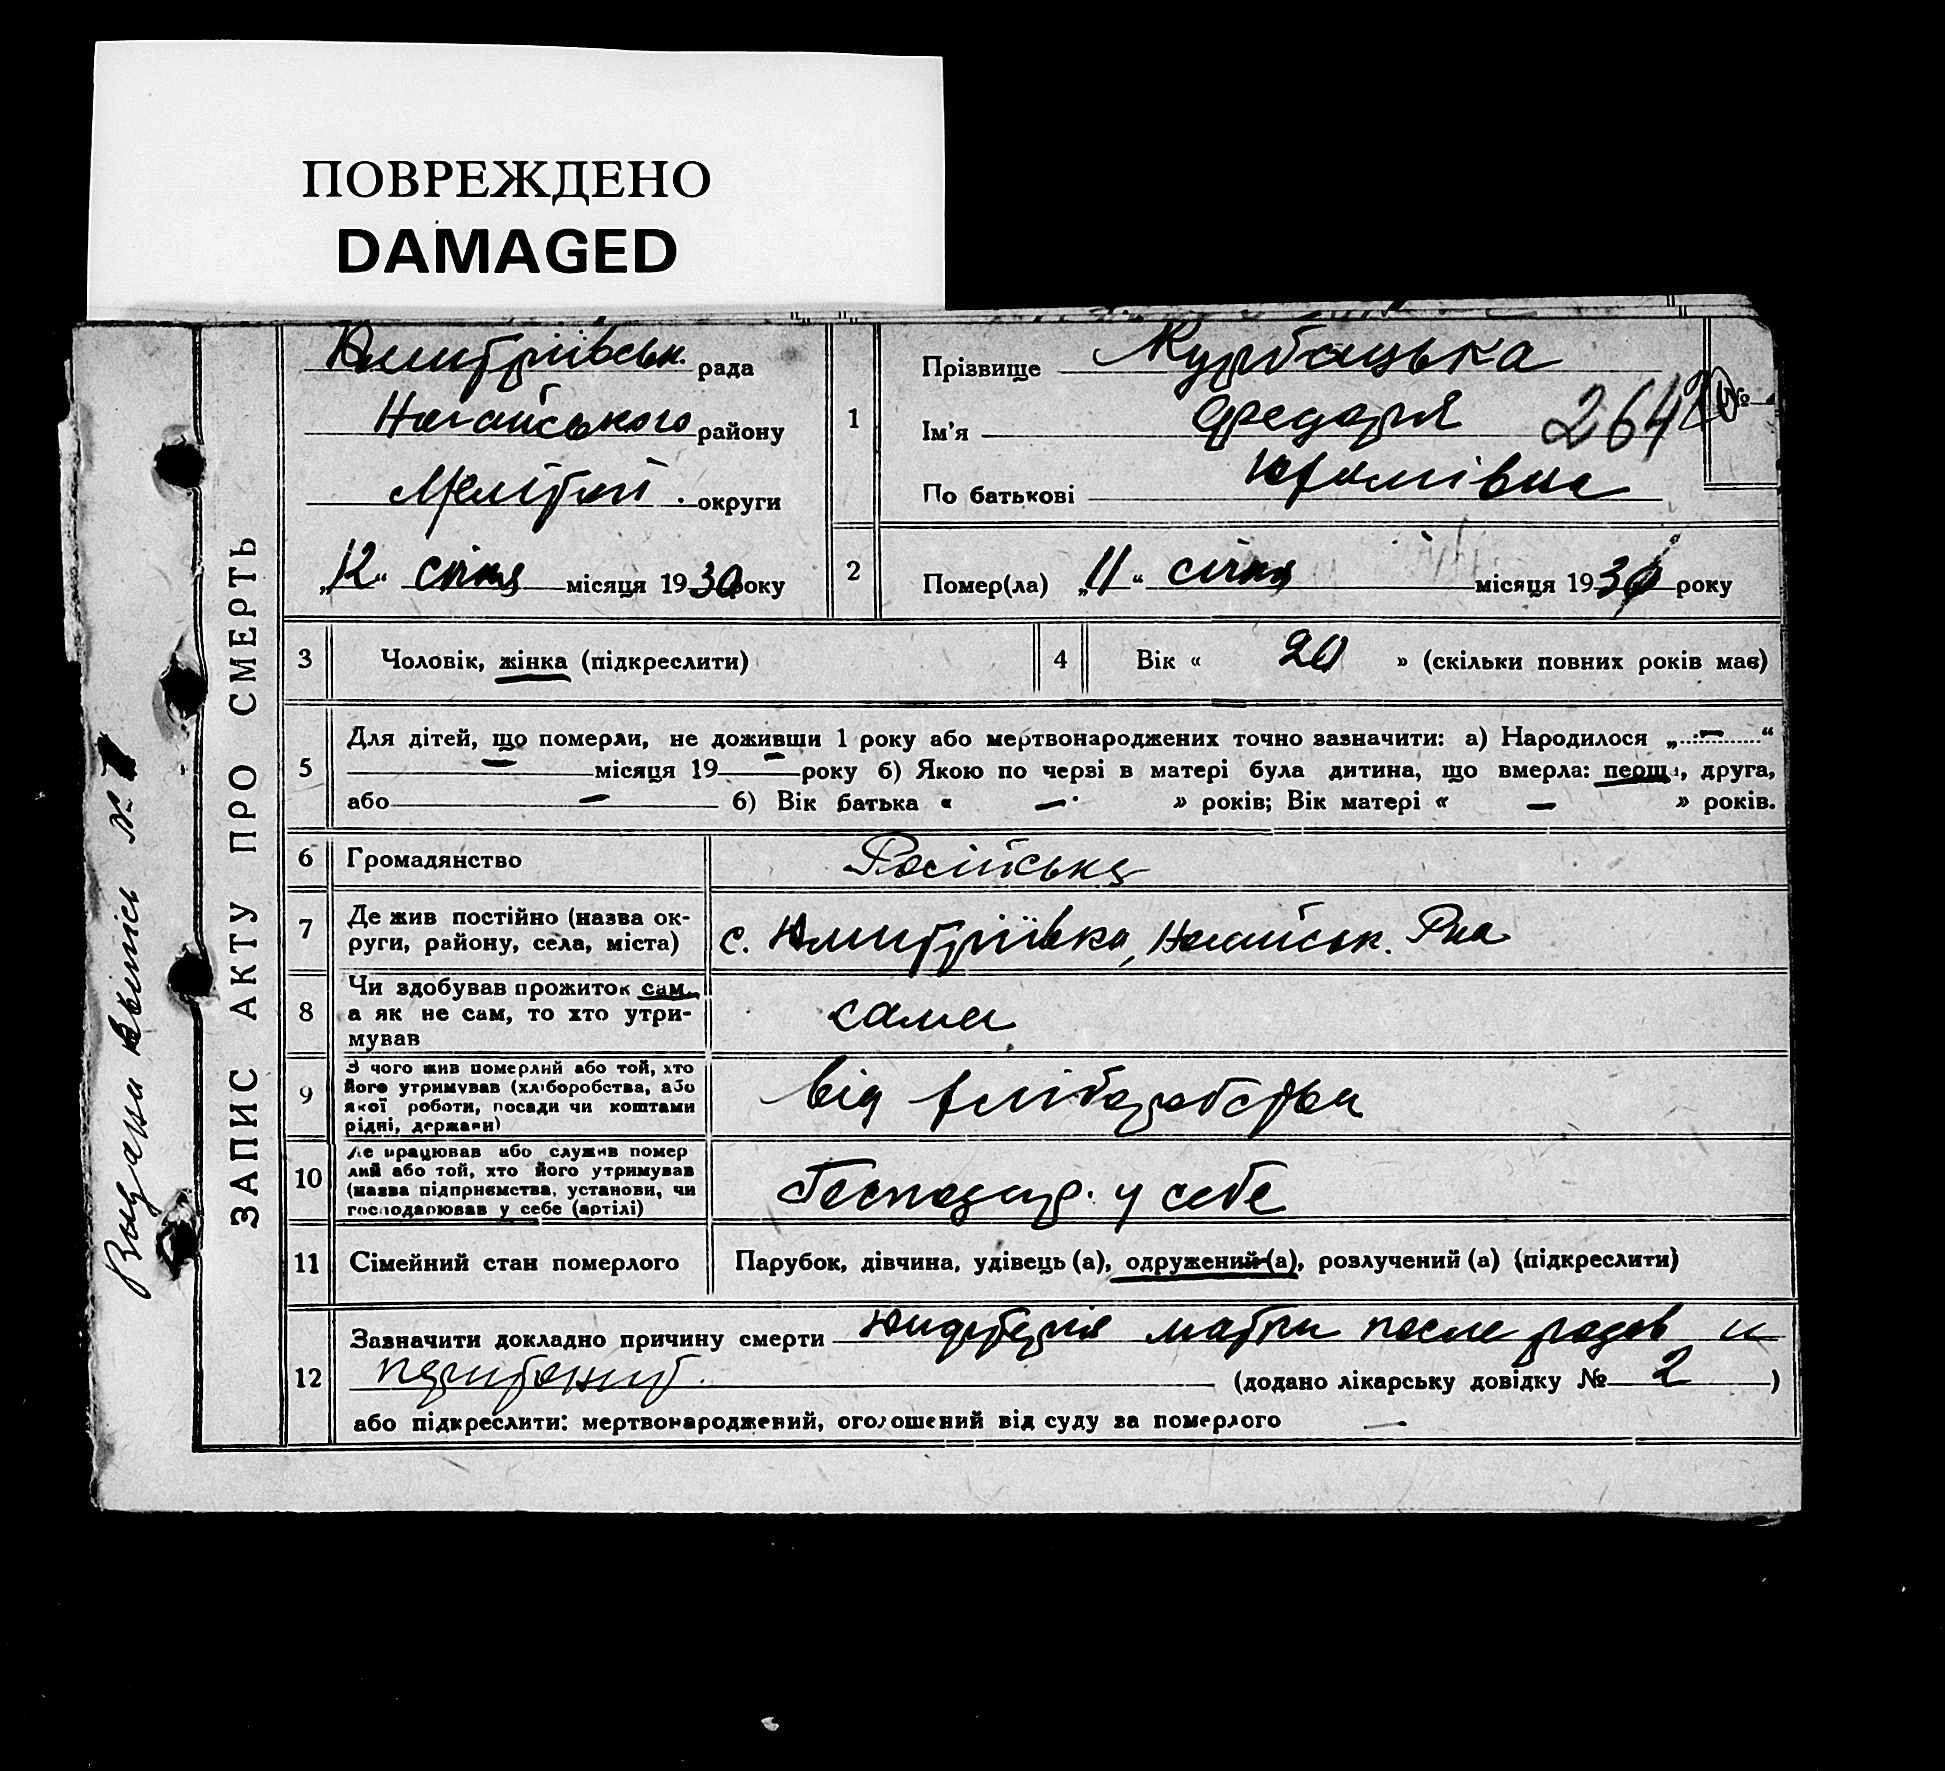 ПОВРЕЖДЕНО
DAMAGED
ЗАПИС АКТУ ПРО СМЕРТЬ
Видана випись №
Дмитріївськ. рада
Ногайського району
Мелітоп. округи
„12“ січня місяця 1930 року
1
Прізвище Курбацька
Ім'я Федора
По батькові Юхимівна
264
№
2
Помер(ла) „11“ січня місяця 1930 року
3 Чоловік, жінка (підкреслити)
4 Вік « 20 » (скільки повних років має)
5
Для дітей, що померли, не доживши 1 року або мертвонароджених точно зазначити: а) Народилося „ — “
— місяця 19 — року б) Якою по черзі в матері була дитина, що вмерла: перша, друга,
або — б) Вік батька « — » років; Вік матері « — » років.
6 Громадянство Російська
7
Де жив постійно (назва ок-
руги, району, села, міста)
с. Дмитріївка, Ногайськ. Р-на
8
Чи здобував прожиток сам,
а як не сам, то хто утри-
мував
сама
9
З чого жив померлий або той, хто
його утримував (хліборобства, або
якої роботи, посади чи коштами
рідні, держави)
від хліборобства
10
Де працював або служив помер
лий або той, хто його утримував
(назва підприємства, установи, чи
господарював у себе (артілі)
Господар. у себе
11 Сімейний стан померлого Парубок, дівчина, удівець (а), одружений (а), розлучений (а) (підкреслити)
12
Зазначити докладно причину смерти матки после родов и
перитонит. (додано лікарську довідку № 2)
або підкреслити: мертвонароджений, оголошений від суду за померлого —